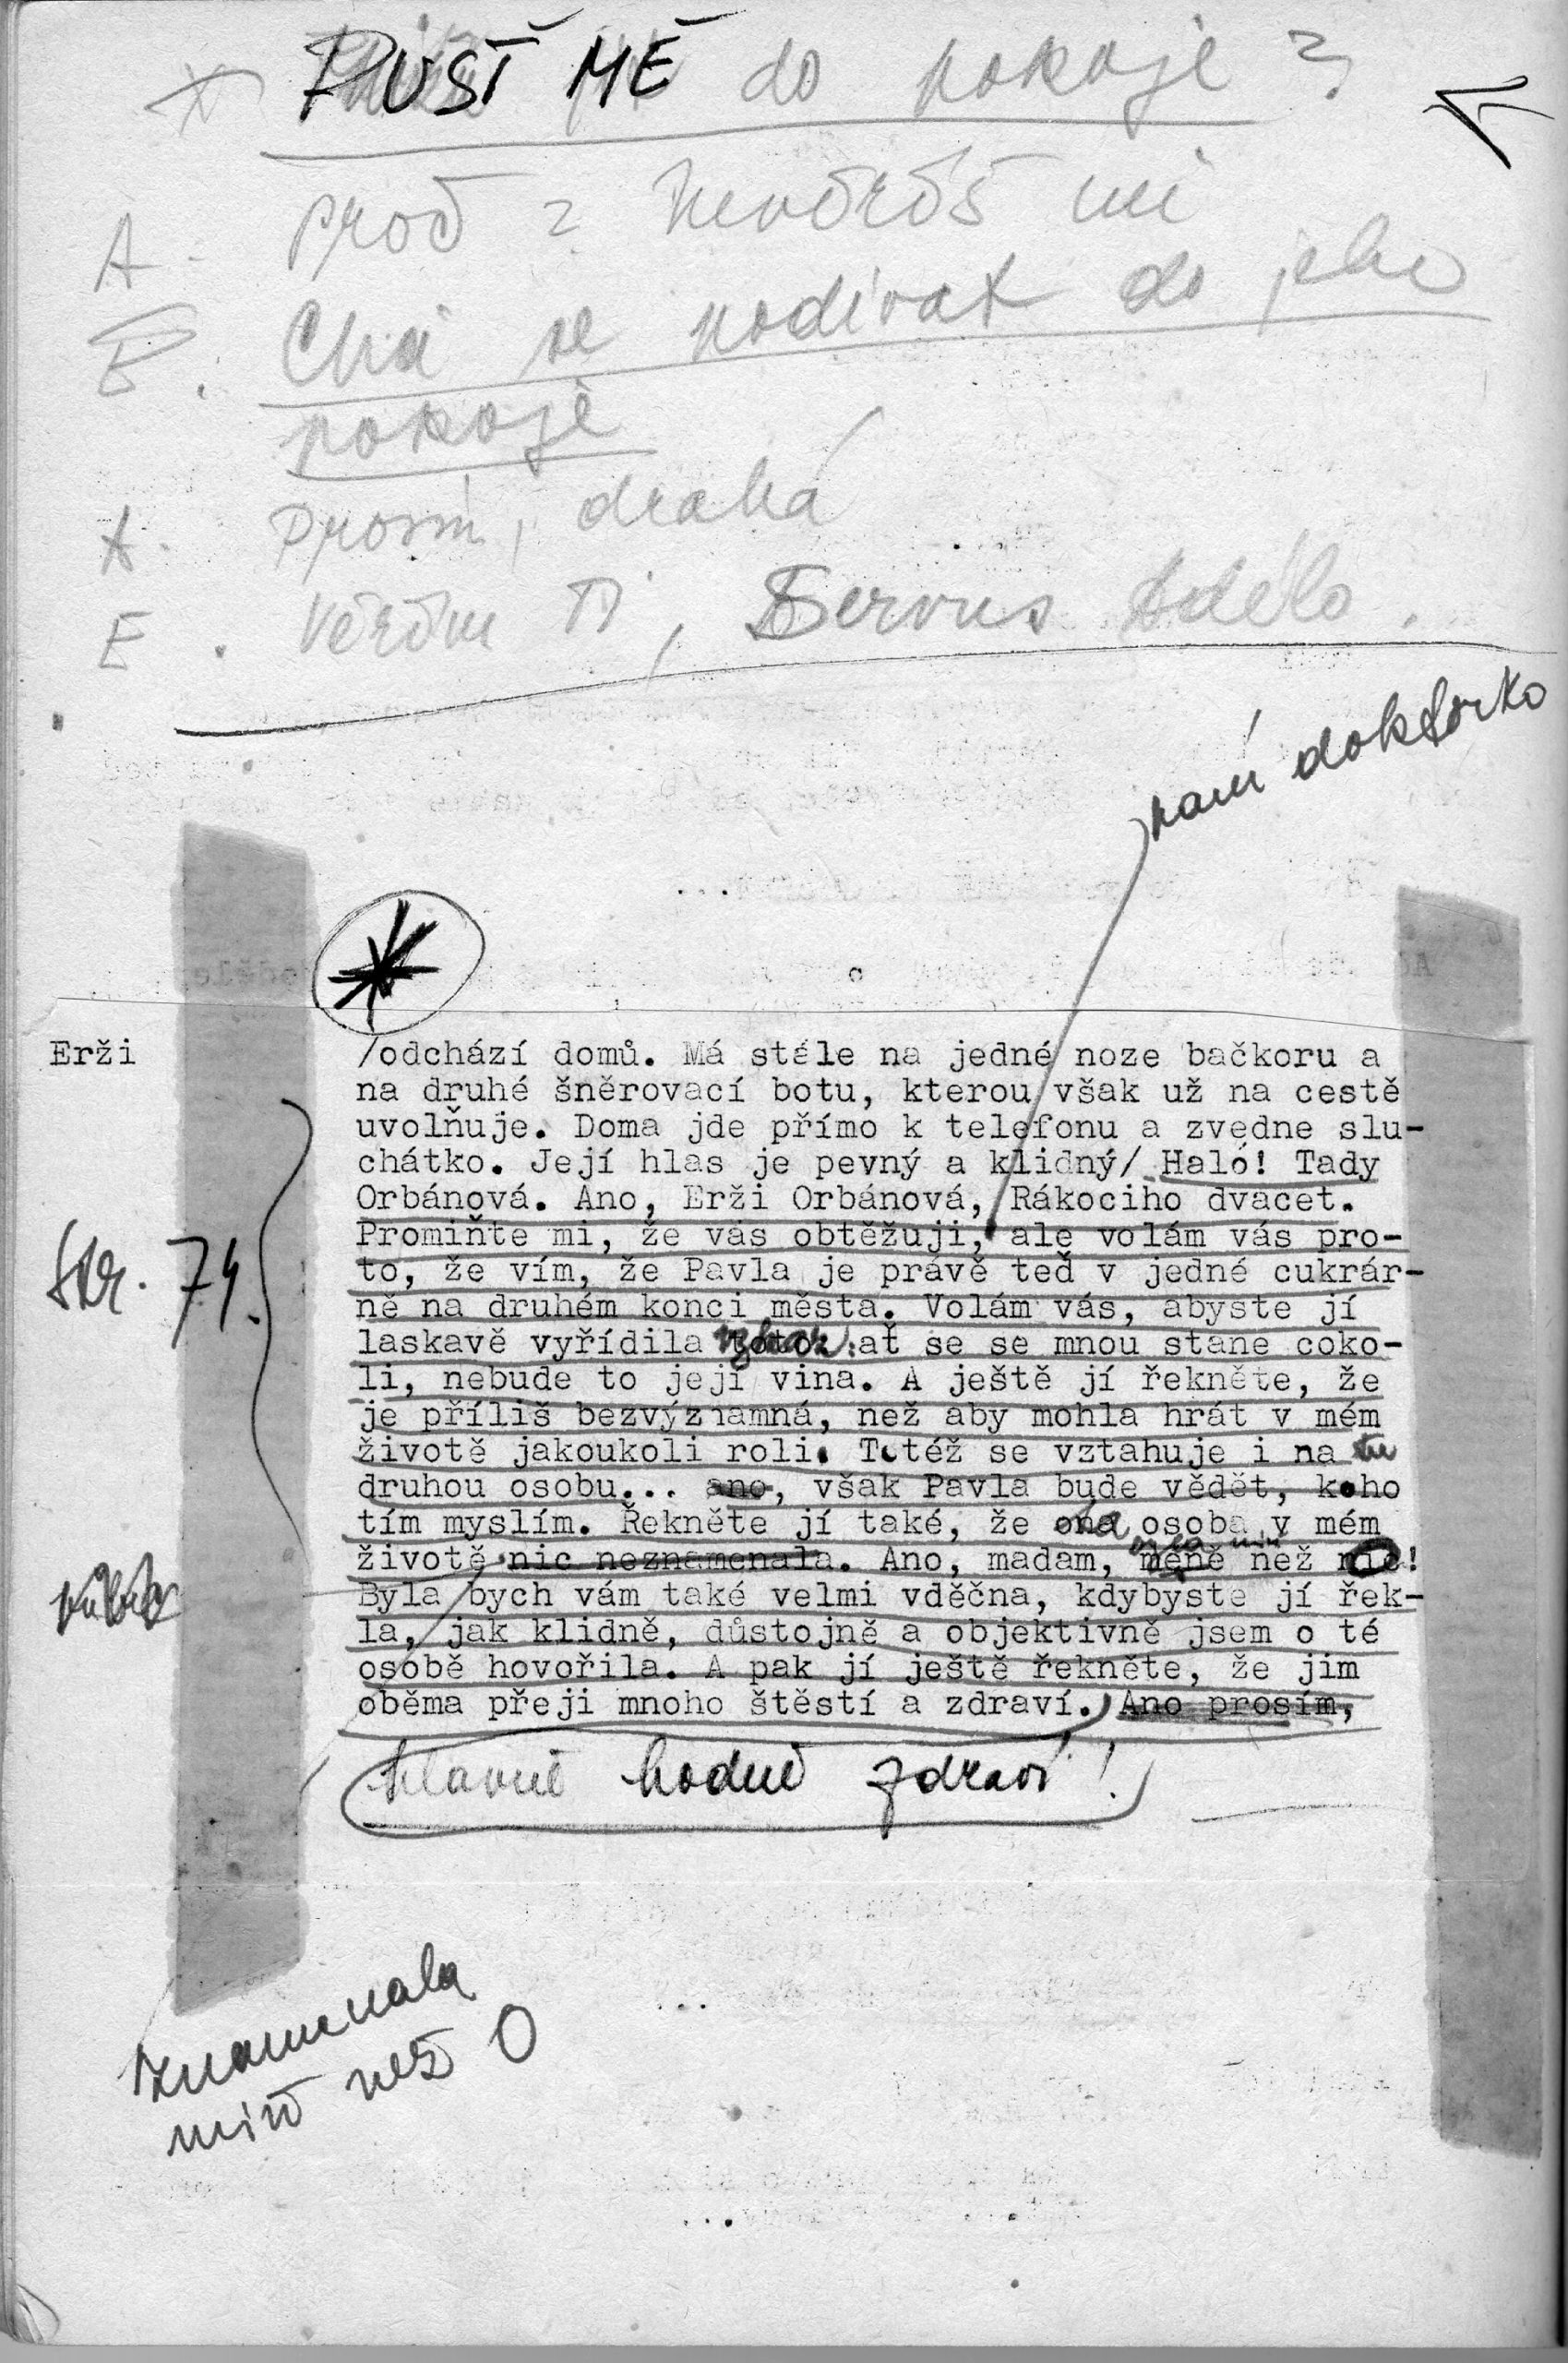 PUSŤ MĚ do pokoje ?
A. proč ? Nevěříš mi
E. Chci se podívat do jeho
pokoje
A. prosím, drahá
E. Věřím Ti, Servus Adélo.
paní doktorko
Erži /odchází domů. Má stále na jedné noze bačkoru a
na druhé šněrovací botu, kterou však už na cestě
uvolňuje. Doma jde přímo k telefonu a zvedne slu-
chátko. Její hlas je pevný a klidný/ Haló! Tady
Orbánová. Ano, Erži Orbánová, Rákociho dvacet.
Promiňte mi, že vás obtěžuji, ale volám vás pro-
Str. 74. to, že vím, že Pavla je právě teď v jedné cukrár-
ně na druhém konci města. Volám vás, abyste jí
laskavě vyřídila vzkaz: ať se se mnou stane coko-
li, nebude to její vina. A ještě jí řekněte, že
je příliš bezvýznamná, než aby mohla hrát v mém
životě jakoukoli roli. Totéž se vztahuje i na tu
druhou osobu... ano, však Pavla bude vědět, koho
tím myslím. Řekněte jí také, že ta osoba v mém
životě nic neznamenala. Ano, madam, méně než nic!
Byla bych vám také velmi vděčna, kdybyste jí řek-
la, jak klidně, důstojně a objektivně jsem o té
osobě hovořila. A pak jí ještě řekněte, že jim
oběma přeji mnoho štěstí a zdraví. Ano prosím,
hlavně hodně zdraví!
znamenala
míň než 0